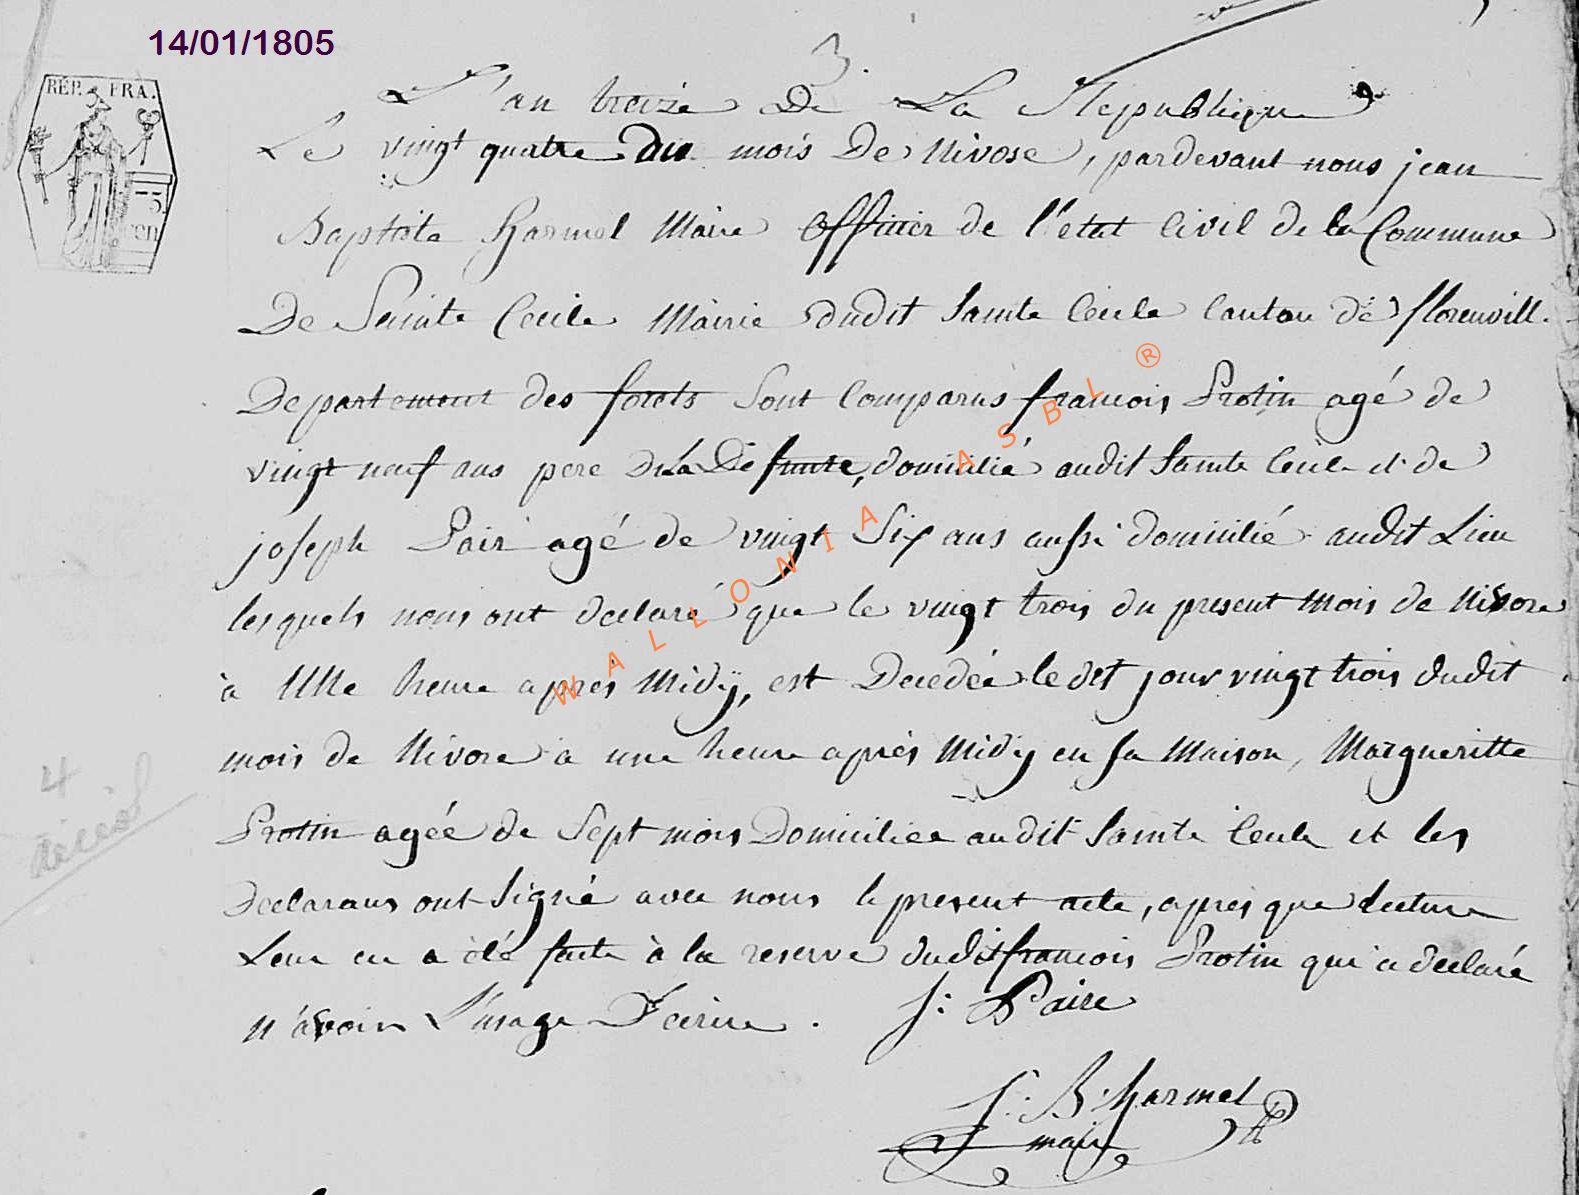 14/01/1805
3.
RÉP. FRA.
L'an treize De La Republique
Le vingt quatre du mois De Nivose, pardevant nous jean
Baptiste Harmel Maire Officier de l'etat Civil de la Commune
De Sainte Cecile Mairie dudit Sainte Cecile Canton de florenvill.
Departement des forets Sont Comparus francois Protin agé de
vingt neuf ans pere de La Defunte, domicilié audit Sainte Cecile et de
joseph Pair agé de vingt Six ans aussi domicilié audit Lieu
lesquels nous ont declaré que le vingt trois du present Mois de Nivose
à Une heure apres Midÿ, est Decedée ledit jour vingt trois dudit
mois de Nivose a une heure apres Midy en sa Maison, Margueritte
Protin agée de Sept mois Domiciliee audit Sainte Cecile et les
Declarans ont Signé avec nous le present acte, apres que lecture
Leur en a été faite à la reserve dudit francois Protin qui a declaré
n'avoir L'usage D'ecrire.
J: Paire
J: B: Harmel
maire
4
décès
WALLONIA ASBL ®